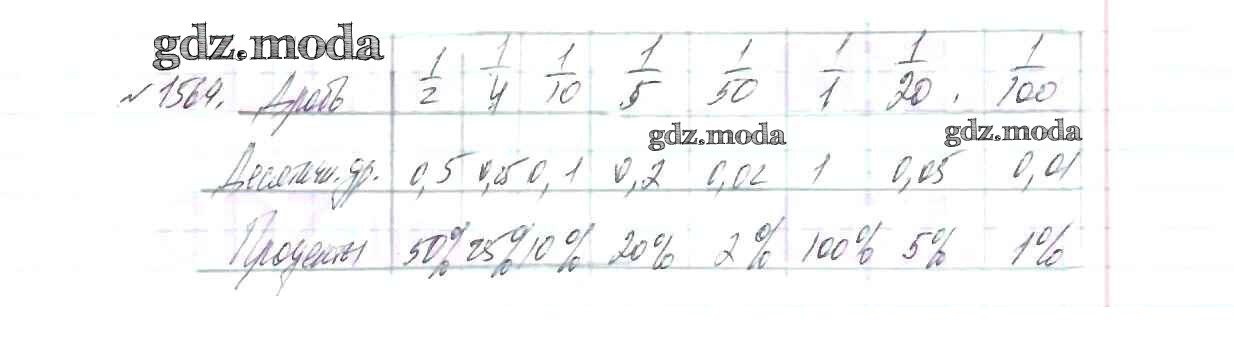 gdz.moda
№ 1564. Дробь 1/2 1/4 1/10 1/5 1/50 1/1 1/20 . 1/100
gdz.moda gdz.moda
Десятичн. др. 0,5 0,25 0,1 0,2 0,02 1 0,05 0,01
Проценты 50% 25% 10% 20% 2% 100% 5% 1%